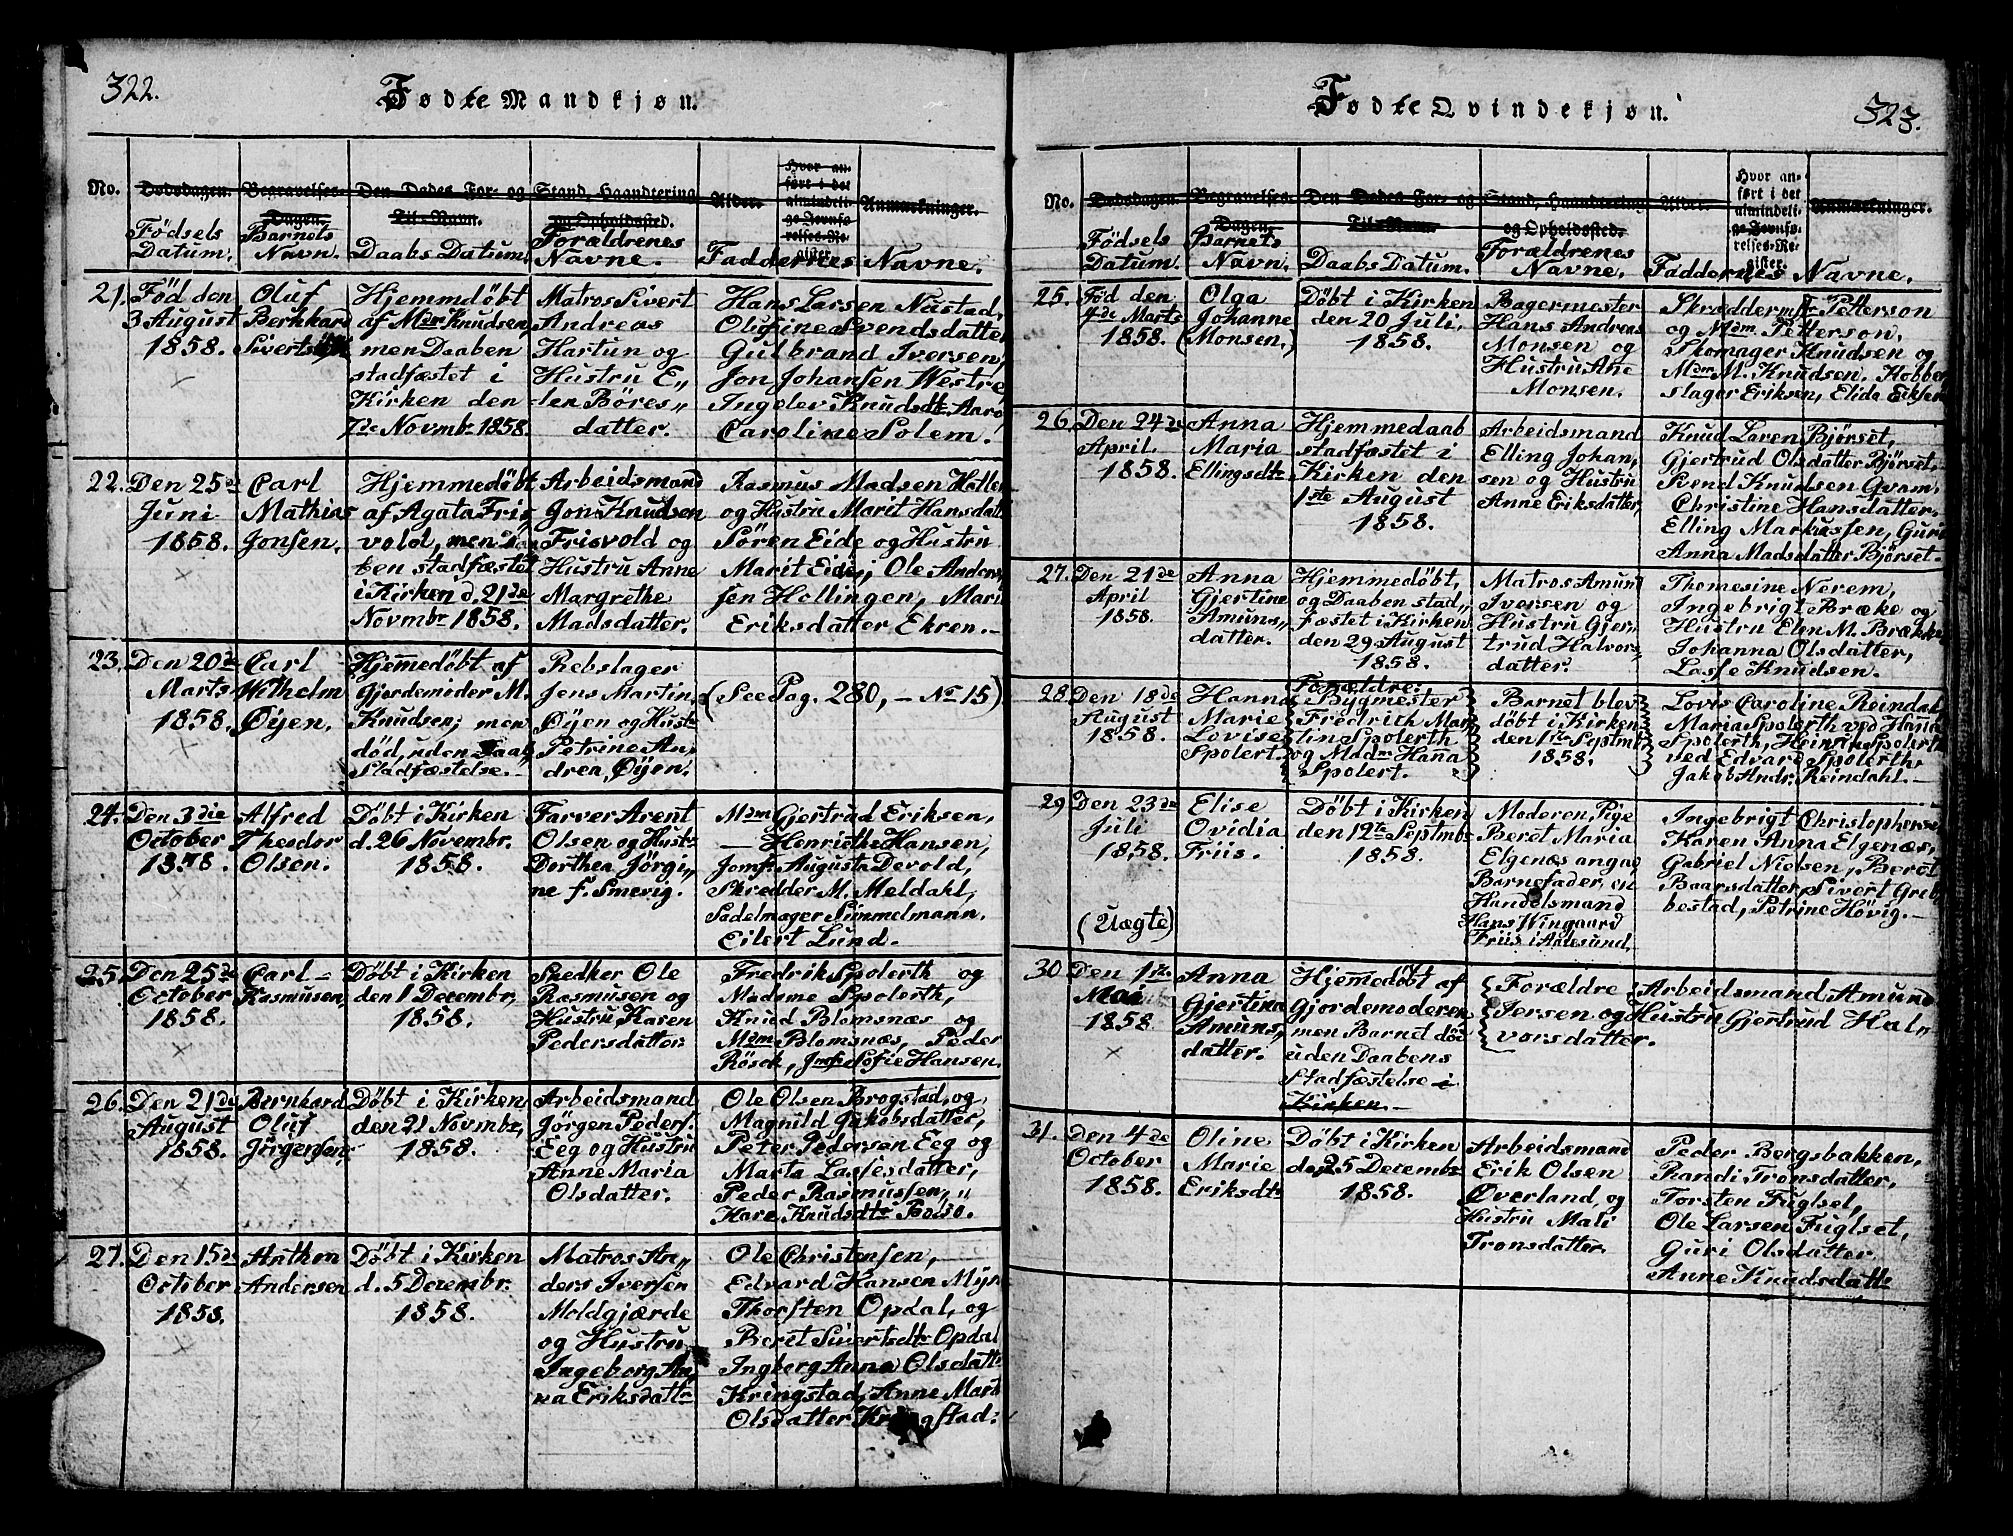 322.
Fødte Mandkjøn.
No.
Dødsdagen.
Begravelses-
Dagen.
Den Dødes For- og
Til-Navn.
Stand, Haandtering
og Opholdsted.
Alder.
Hvor an-
ført i det
almindeli-
ge Jevnfø-
relses-Re-
gister.
Anmærkninger.
Fødsels
Datum.
Barnets
Navn.
Daabs Datum.
Forældrenes
Navne.
Faddernes Navne.
21.
Fød den
3 August
1858.
Oluf
Bernhard
Hjemmedøbt
af Mdm Knudsen,
men Daaben
stadfæstet i
Kirken den
7de Novmbr. 1858.
Matros Sivert
Andreas
Hartun og
Hustru E„
len Böres„
datter.
Hans Larsen Nustad,
Olufine Svendsdatter
Gulbrand Iversen,
Jon Johansen Westre,
Ingolev Knudsdtr. Aarø
Caroline Solem.
22.
Den 25de
Juni
1858.
Carl
Mathias
Jonsen.
Hjemmedøbt
af Agata Fris„
vold, men Daa
ben stadfæstet
i Kirken d. 21de
Novmbr 1858.
Arbeidsmand
Jon Knudsen
Frisvold og
Hustru Anne
Margrethe
Madsdatter.
Rasmus Madsen Hollen
og Hustru Marit Hansdatt
Sören Eide og Hustru
Marit Eide; Ole Anders,
sen Hollingen, Mari
Eriksdatter Ekren.
23.
Den 20de
Marts
1858.
Carl
Wilhelm
Øyen.
Hjemmedøbt af
Gjordemoder M.
Knudsen; men
død, uden Daab„
Stadfæstelse.
Rebslager
Jens Martin,
Øyen og Hustr
Petrine An„
drea, Øyen.
(See Pag. 280, – No 15)
24.
Den 3die
October
1858.
Alfred
Theodor
Olsen.
Döbt i Kirken
d. 26 Novembr.
1858.
Farver Arent
Olsen og Hustr
Dorthea Jörgi„
ne f. Smevig.
Mdm Gjertrud Eriksen,
— Henriethe Hansen,
Jomfr. Augusta Devold,
Skredder M. Meldahl,
Sadelmager Simmelmann.
Eilert Lund.
25.
Den 25de
October
1858.
Carl
Rasmusen,
Döbt i Kirken
den 1 Decembr,
1858.
Snedker Ole
Rasmusen og
Hustru Karen
Pedersdatter.
Fredrik Spolerth og
Madame Spolerth,
Knud Blomsnæs og
Mdm Blomsnæs, Peder
Rösok, Jmfr Sofie Hansen.
26.
Den 21de
August
1858.
Bernhard
Oluf
Jörgensen,
Döbt i Kirken
den 21 Novmbr,
1858.
Arbeidsmand
Jörgen Peders.
Eeg og Hustru
Anne Maria
Olsdatter.
Ole Olsen Brogstad, og
Magnild Jakobsdatter,
Peter Pedersen Eeg og
Marta Lassesdatter,
Peder Rasmussen, „
Kare Knudsdtr Bolsø.
27.
Den 15de
October
1858.
Anthon
Andersen
Döbt i Kirken
d. 5 Decembr.
1858.
Matros An„
ders Iversen
Moldgjærde
og Hustru
Ingeborg An„
na Eriksdattr
Ole Christensen,
Edvard Hansen
Thorsten Opdal, og
Beret Siuertsdtr Opdal
Ingberg Anna Olsdattr
Kringstad, Anne Mart
Olsdatter Kringstad.
323.
Fødte Qvindekjøn.
No.
Dødsdagen.
Begravelses-
Dagen.
Den Dødes For- og
Til-Navn.
Stand, Haandtering
og Opholdsted.
Alder.
Hvor an-
ført i det
almindeli-
ge Jevnfø-
relses-Re-
gister.
Anmærkninger.
Fødsels
Datum.
Barnets
Navn.
Daabs Datum.
Forældrenes
Navne.
Faddernes Navne.
25.
Fød den
4de Marts
1858.
Olga
Johanne
(Monsen.)
Døbt i Kirken
den 20 Juli,
1858.
Bagermester
Hans Andreas
Monsen og
Hustru Ane
Monsen.
Skræddermstr Petterson
og Mdm. Petterson,
Skomager Knudsen og
Mdm M. Knudsen, Kobber
slager Eriksen, Elida Eriksen
26.
Den 24de
April.
1858.
Anna
Maria
Ellingsdtr
Hjemmedaab
stadfæstet i
Kirken den
1ste August
1858.
Arbeidsmand
Elling Johan,
sen og Hustru
Anne Eriksdatter,
Knud Laren Bjørset,
Gjertrud Olsdatter Bjørset,
Svend Knudsen Gvam,
Christine Hansdatter,
Elling Markussen, Guri
Anna Madsdatter Bjørset.
27.
Den 21de
April
1858.
Anna
Gjertine
Amuns„
datter.
Hjemmedøbt,
og Daaben stad„
fæstet i Kirken
den 29 August
1858.
Matros Amund
Iversen og
Hustru Gjer„
trud Halvors„
datter.
Thomesine Nerem,
Ingebrigt Bræke og
Hustru Elen M. Brække
Johanna Olsdatter,
Lasse Knudsen.
28.
Den 18de
August
1858.
Hanna
Marie
Lovise
Spolert.
Forældre:
Bygmester
Fredrich Mar„
tin Spolerth
og Madm Hana
Spolert.
Barnet blev
døbt i Kirken
den 1ste Septmb
1858.
Lovis Caroline Reindal
Maria Spolerth ved Hanna
Spolerth, Heinrin Spolerth
ved Edvard Spolerth,
Jakob Andr. Reindahl.
29.
Den 23de
Juli
1858.
(Uægte)
Elise
Ovidia
Friis.
Döbt i Kirken
den 12te Septmbr
1858.
Moderen, Pige
Beret Maria
Elgenæs angav
Barnefader, en
Handelsmand
Hans Wingaard
Friis i Aalesund.
Ingebrigt Christophersen
Karen Anna Elgenæs,
Gabriel Nielsen, Beret
Baarsdatter, Sivert Greb
bestad, Petrine Hövig.
30.
Den 1ste
Mai
1858.
Anna
Gjertina
Amuns„
datter.
Hjemmedøbt af
Gjordemoderen
men Barnet död
uden Daabens
Stadfæstelse i
Kirken.
Forældre Arbeidsmand Amund
Iersen og Hustru Gjertrud Hal„
vorsdatter.
31.
Den 4de
October
1858.
Oline
Marie
Eriksdtr
Döbt i Kirken
den 25 Decembr
1858.
Arbeidsmand
Erik Olsen
Øverland, og
Hustru Mali
Tronsdatter.
Peder Bergsbakken,
Randi Tronsdatter,
Torsten Fuglset,
Ole Larsen Fuglset,
Guri Olsdatter
Anne Knudsdattr